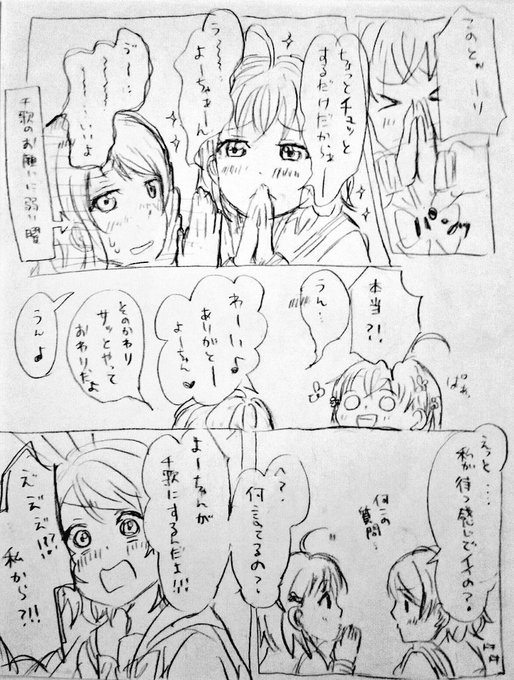 このとおーり
パンッ
ちょっとチュッと
するだけだからぁー
う〜〜〜
よーちゃぁーん
いいよ
千歌のお願いに弱い曜
本当?!!
ぱぁ
うん…
わーい♪
ありがとー
よーちゃん♥
そのかわり
サッとやって
おわりだよ
うん♪
えっと…
私が待つ感じでイイの?
何この
質問…
へ?
何言てるの?
よーちゃんが
千歌にするんだよ!!!
私から?!!